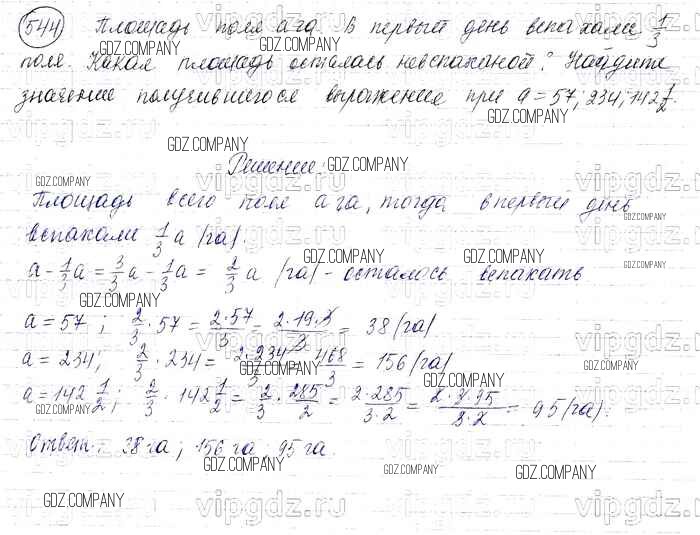 544 Площадь поля а га. В первый день вспахали 1/3
поля. Какая площадь осталась невспаханой? Найдите
значение получившегося выражения при а = 57; 234; 142 1/2.
Решение:
Площадь всего поля а га, тогда в первый день
вспахали 1/3 а (га).
а - 1/3 а = 3/3 а - 1/3 а = 2/3 а (га) - осталось вспахать
а = 57; 2/3 · 57 = 2·57/3 = 2·19·3/3 = 38 (га)
а = 234; 2/3 · 234 = 2·234/3 = 468/3 = 156 (га)
а = 142 1/2; 2/3 · 142 1/2 = 2/3 · 285/2 = 2·285/3·2 = 2·3·95/3·2 = 95 (га).
Ответ: 38 га; 156 га, 95 га.
GDZ.COMPANY
vipgdz.ru